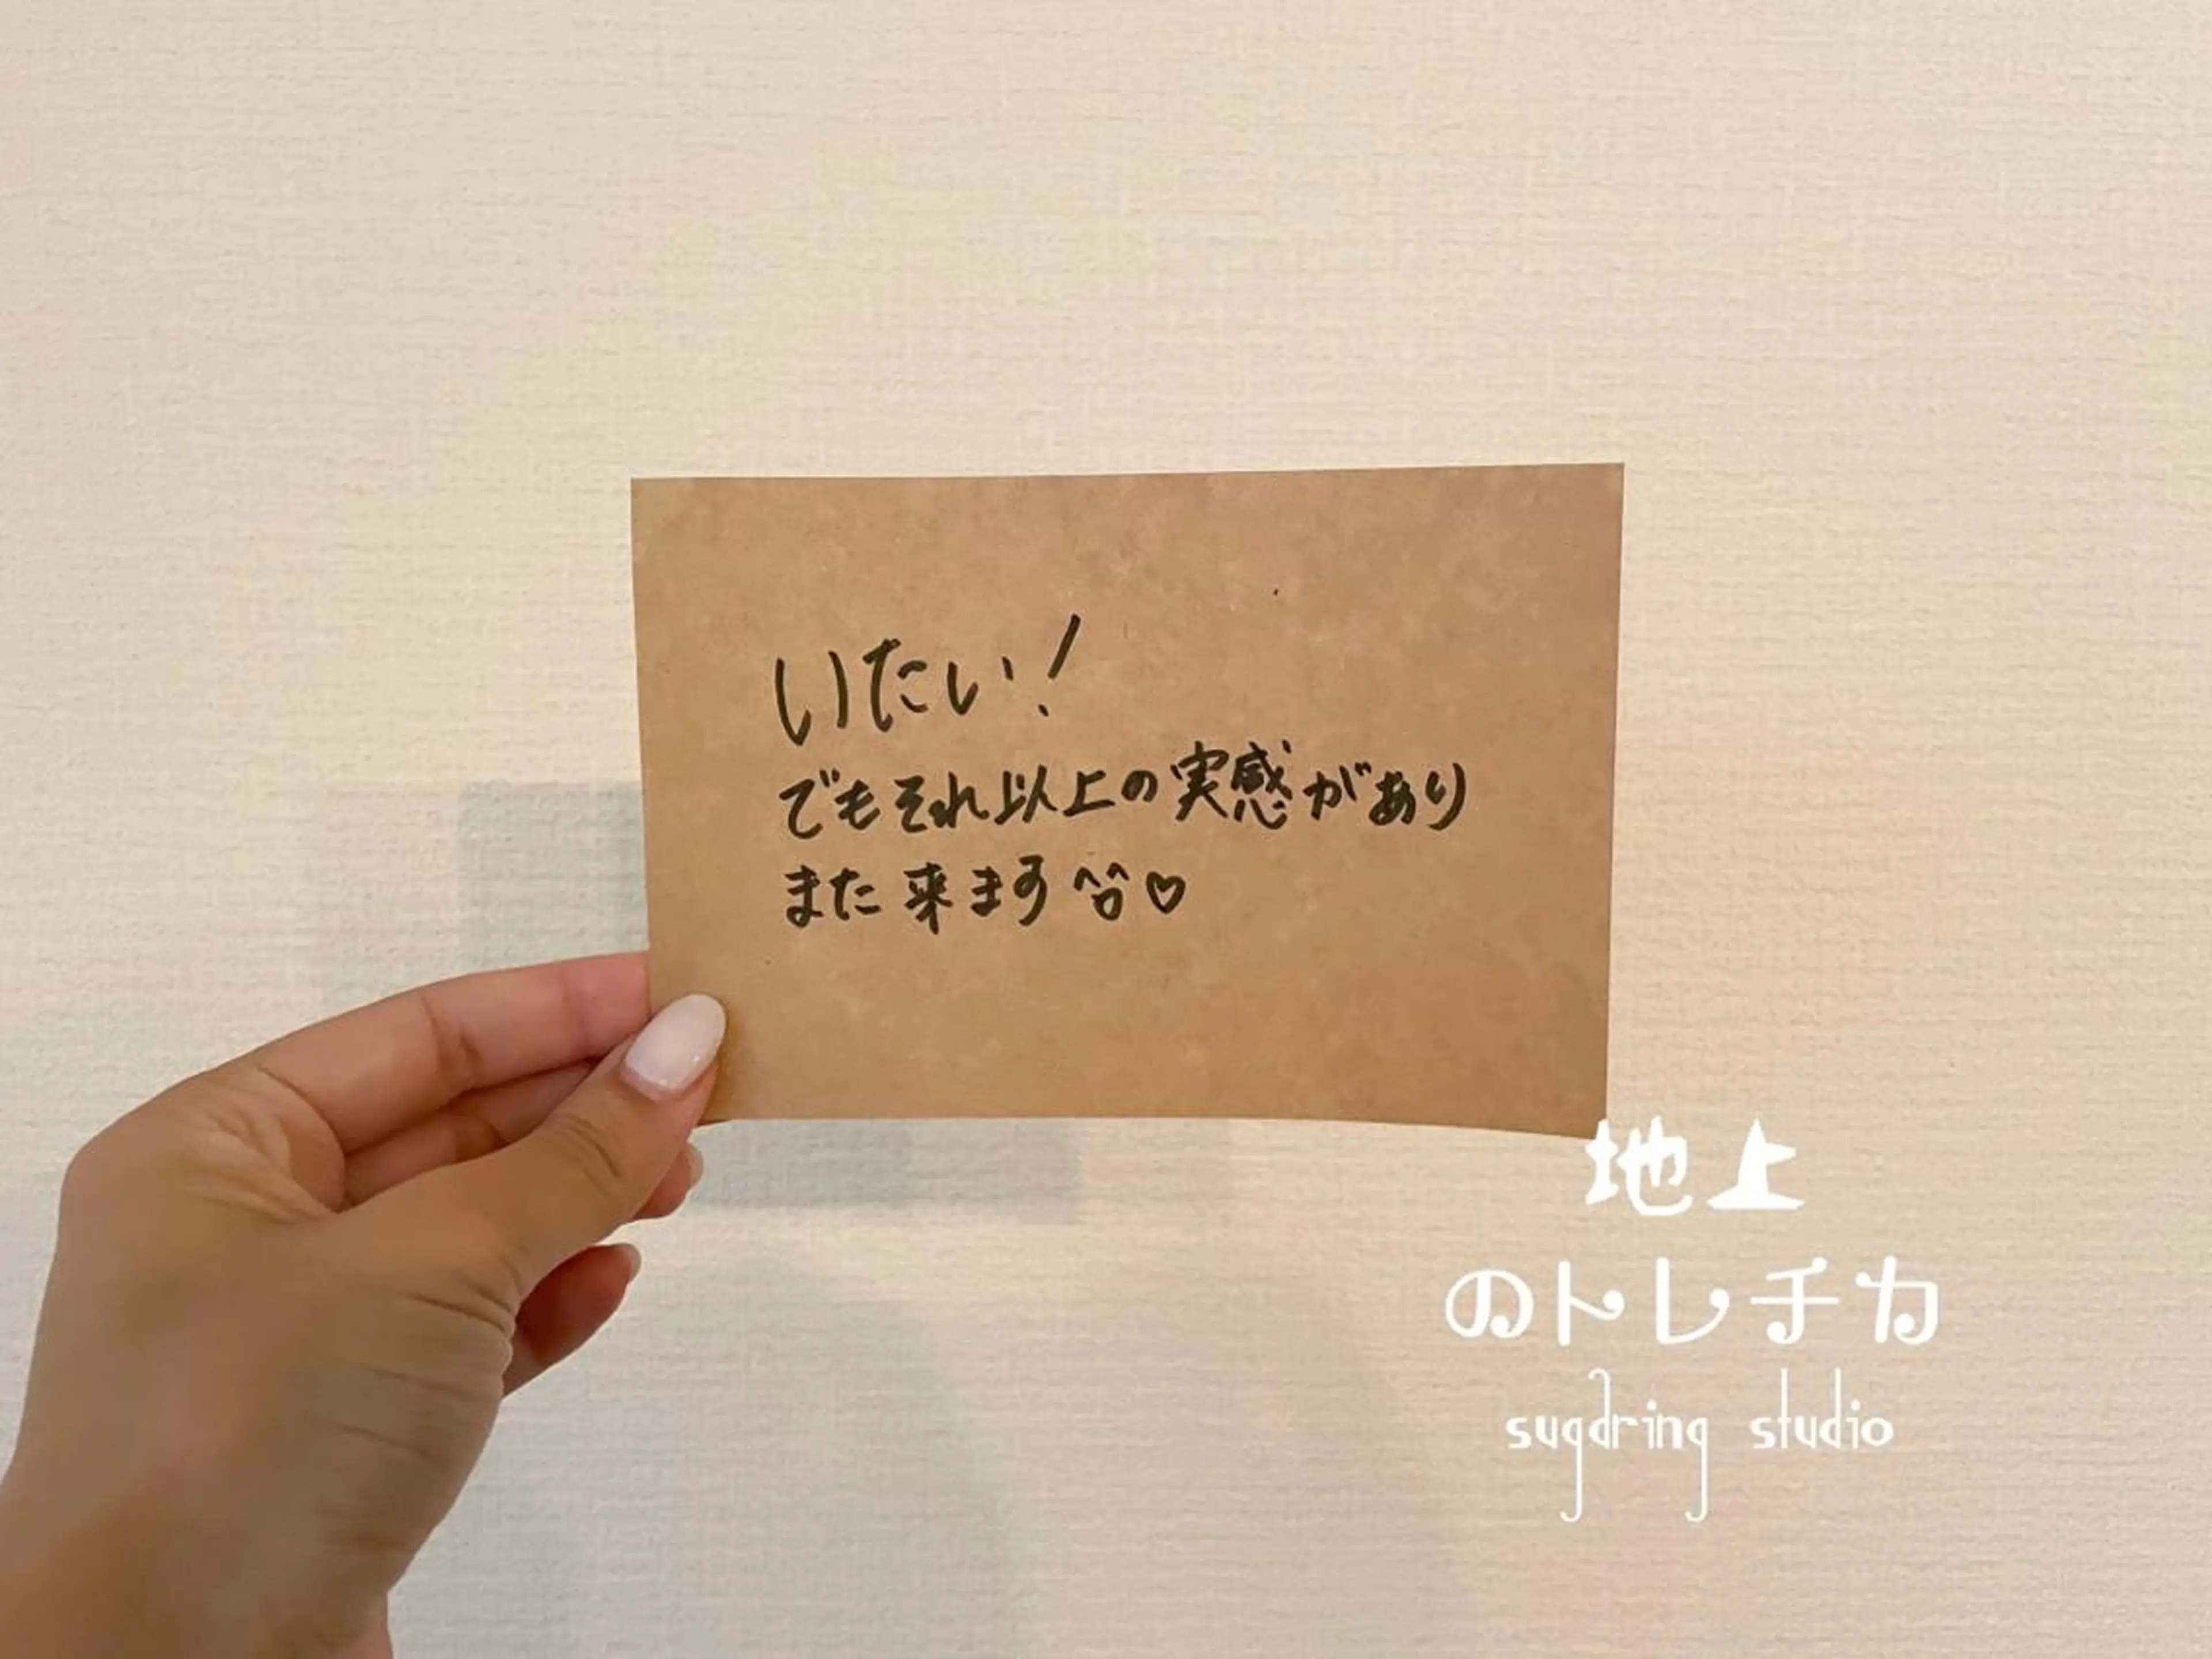 いたい!
でもそれ以上の実感があり
また来ます^^♡
地上
のトレチカ
sugaring studio